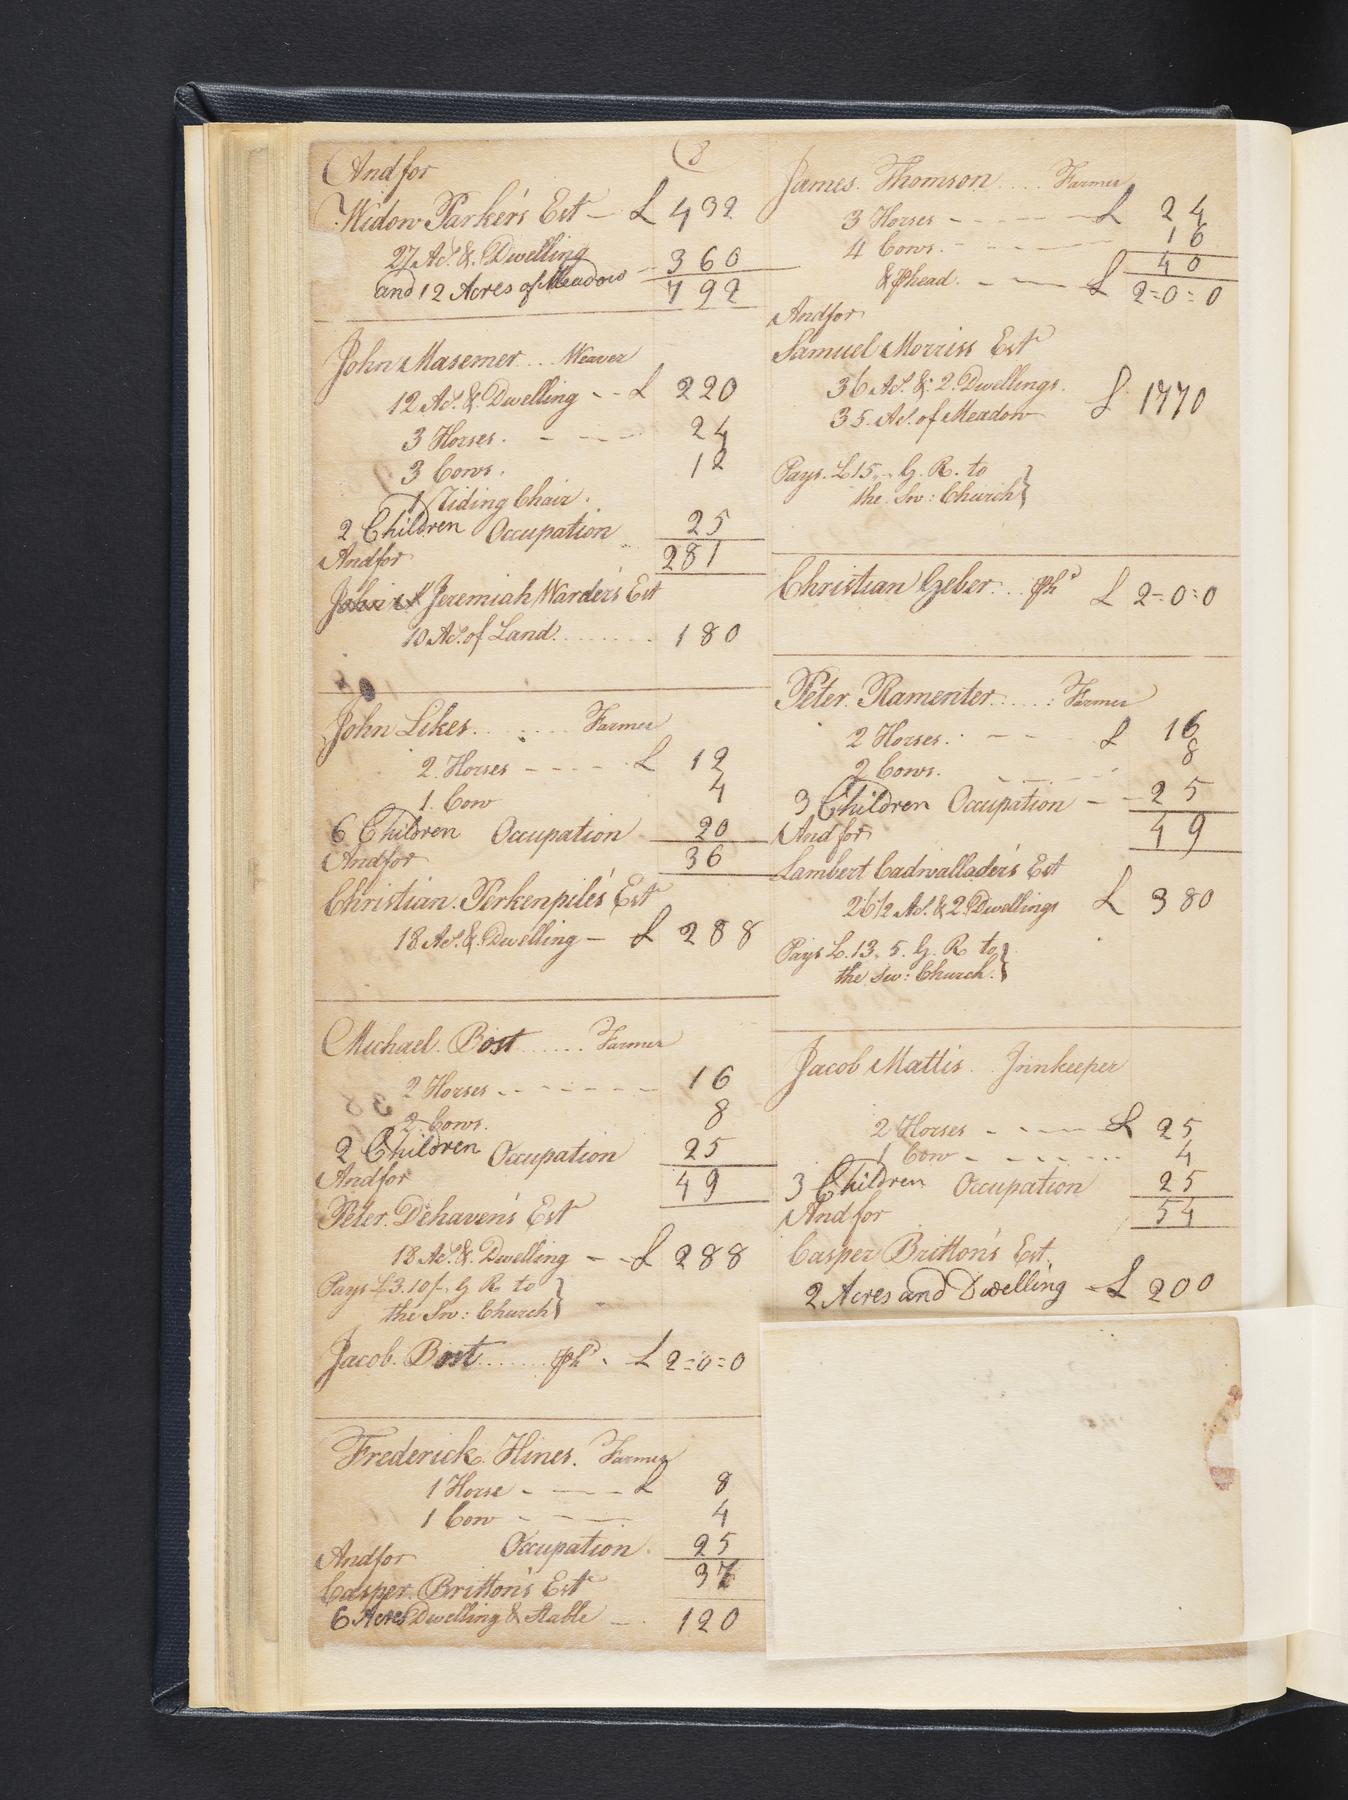 (8
And for
Widow Parker's Est - £ 432
27 As. & Dwelling
and 12 Acres of Meadow - 360
792
John Masemer... Weaver
12 As. & Dwelling - - £ 220
3 Horses. - - - 24
3 Cows. 12
1 Riding Chair.
2 Children Occupation 25
And for 281
Jeremiah Warder's Est
10 As. of Land....... 180
John Likes........ Farmer
2. Horses - - - - £ 12
1. Cow 4
6 Children Occupation 20
And for 36
Christian. Perkenpile's Est
18 As. & Dwelling - £ 288
Michael. Bost...... Farmer
2 Horses - - - - - 16
2. Cows. 8
2 Children Occupation 25
And for 49
Peter. Dehaven's Est
18 As. & Dwelling - - £ 288
Pays £3.10/. G R to
the Sw: Church }
Jacob. Bost....... ℔hd. £ 2=0=0
Frederick. Hines. Farmer
1 Horse - - - £ 8
1 Cow - - - 4
Occupation. 25
And for 37
Casper. Britton's Este
6 Acres Dwelling & Stable - . 120
James. Thomson.... Farmer
3 Horses - - - - - £ 24
4 Cows. - - - - 16
40
& ℔head. - - £ 2=0=0
And for
Samuel Morriss Este
36 As. & 2. Dwellings.
35. As. of Meadow £ 1770
Pays. £15,, G. R. to
the. Sw: Church }
Christian Geber... ℔hd £ 2=0=0
Peter. Ramenter.....: Farmer
2 Horses. - - - £ 16
2 Cows. - - - - 8
3 Children Occupation - - 25
And for 49
Lambert Cadwallader's Est
26 1/2 As. & 2. Dwellings £ 380
Pays £. 13. 5. G. R to
the Sw: Church. }
Jacob Mattis. Innkeeper
2 Horses - - - £ 25
1 Cow - - - - - 4
3 Children Occupation 25
And for 54
Casper Britton's Est.
2 Acres and Dwelling - £ 200